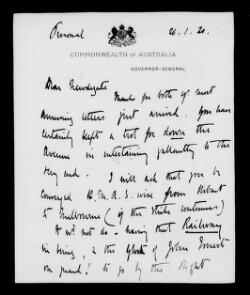 Personal 26.1.20.
COMMONWEALTH OF AUSTRALIA
GOVERNOR-GENERAL
Dear Newdegate
Thanks for both of most
amusing letters just arrived. You have
certainly kept a trot far down the
Avenue in entertaining gallantly to the
very end. I will ask that you be
conveyed H.M.A.S. wise from Hobart
to Melbourne (if the strike continues)
It will not do - having that Railway
in being, & the of John Ernest
on guard! to go by the Night